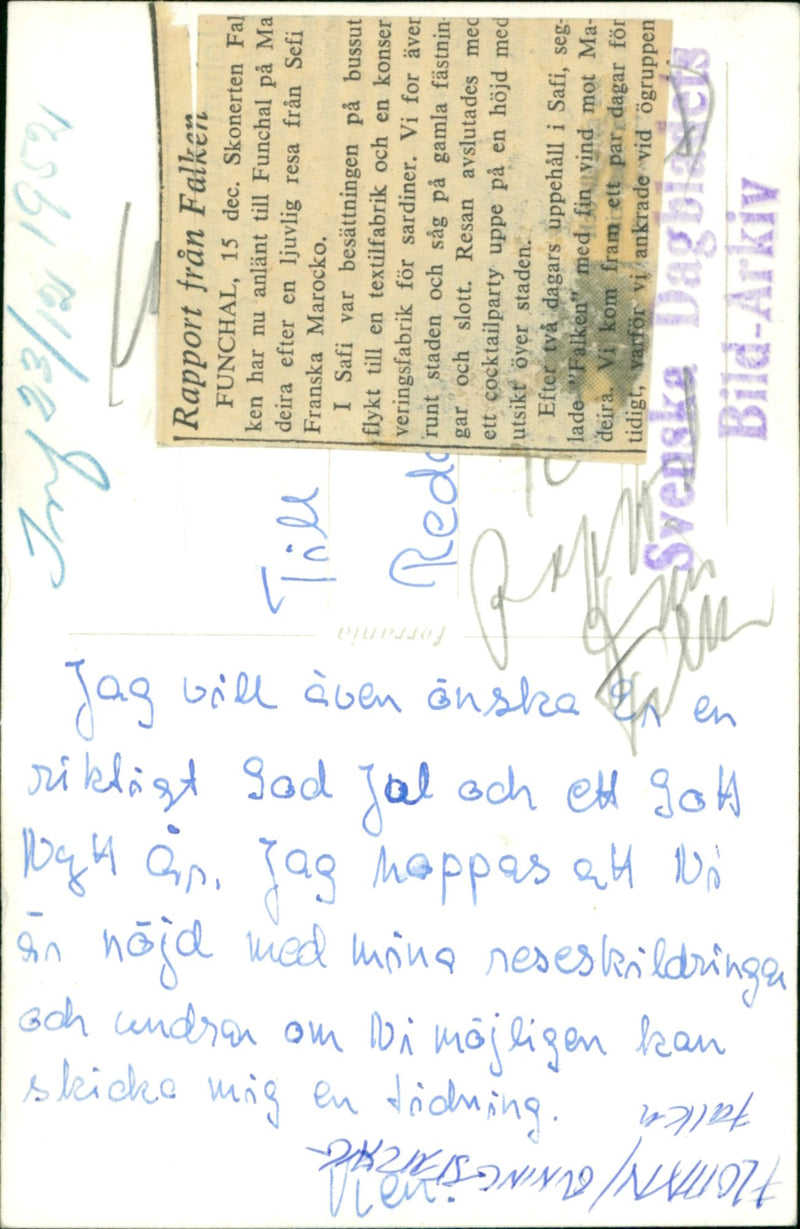 Inf 23/12 1952
Rapport från Falken
FUNCHAL, 15 dec. Skonerten Fal
ken har nu anlänt till Funchal på Ma
deira efter en ljuvlig resa från Sefi
Franska Marocko.
I Safi var besättningen på bussut
flykt till en textilfabrik och en konser
veringsfabrik för sardiner. Vi for även
runt staden och såg på gamla fästnin-
gar och slott. Resan avslutades med
ett cocktailparty uppe på en höjd med
utsikt över staden.
Efter två dagars uppehåll i Safi, seg-
lade "Falken" med fin vind mot Ma-
deira. Vi kom fram ett par dagar för
tidigt, varför vi ankrade vid ögruppen
Svenska Dagbladets
Bild-Arkiv
Till
Red
Ferrania
Jag vill även önska Er en
riktigt God Jul och ett Gott
Nytt År. Jag hoppas att Ni
är nöjd med mina reseskildringar
och undrar om Ni möjligen kan
skicka mig en tidning.
Vien.
Falken